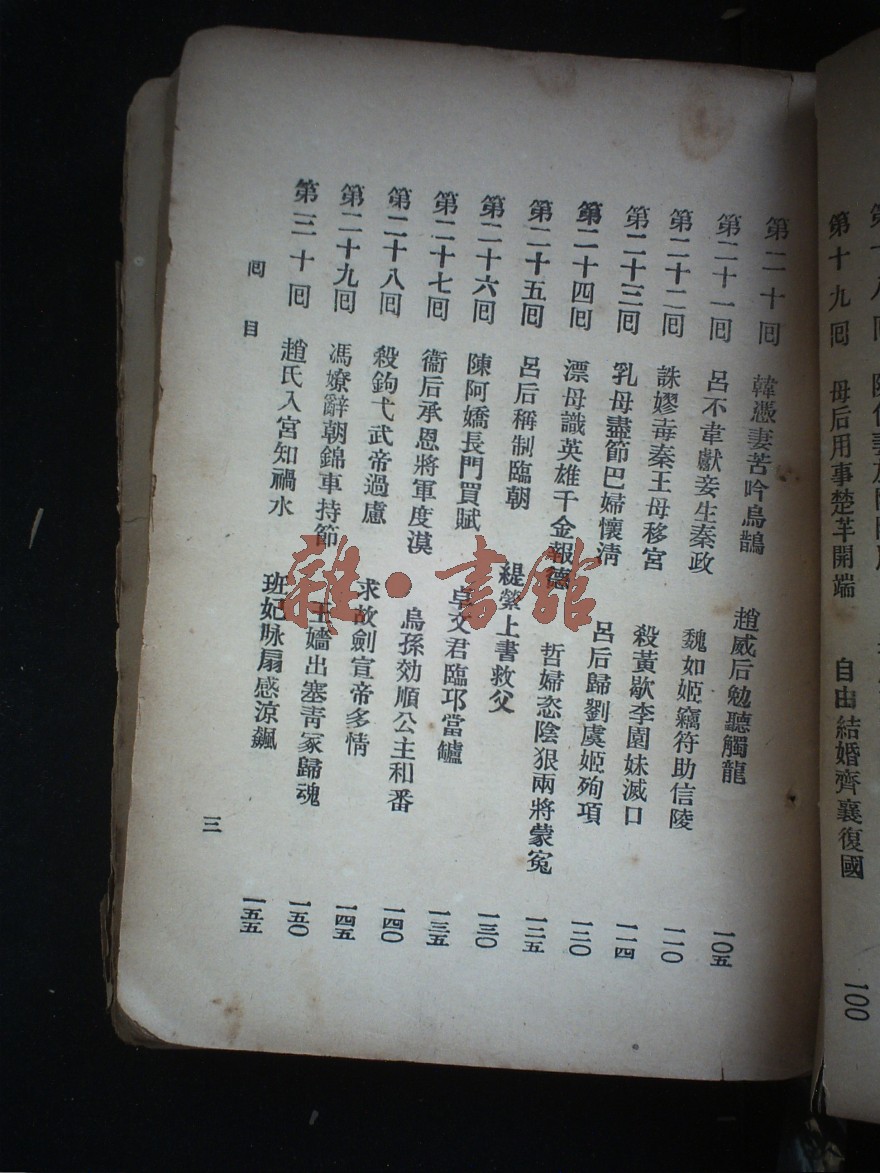 第十九囘 母后用事楚羋開端 自由結婚齊襄復國 100
第二十囘 韓憑妻苦吟烏鵲 趙威后勉聽觸龍 一〇五
第二十一囘 呂不韋獻妾生秦政 魏如姬竊符助信陵 一一〇
第二十二囘 誅嫪毐秦王母移宮 殺黃歇李園妹滅口 一一四
第二十三囘 乳母盡節巴婦懷淸 呂后歸劉虞姬殉項 一二〇
第二十四囘 漂母識英雄千金報德 哲婦恣陰狠兩將蒙寃 一二五
第二十五囘 呂后稱制臨朝 緹縈上書救父 一三〇
第二十六囘 陳阿嬌長門買賦 卓文君臨邛當鑪 一三五
第二十七囘 衞后承恩將軍度漠 烏孫効順公主和番 一四〇
第二十八囘 殺鉤弋武帝過慮 求故劍宣帝多情 一四五
第二十九囘 馮嫽辭朝錦車持節 王嬙出塞靑冢歸魂 一五〇
第三十囘 趙氏入宮知禍水 班妃咏扇感涼飆 一五五
囘目 三
雜·書館